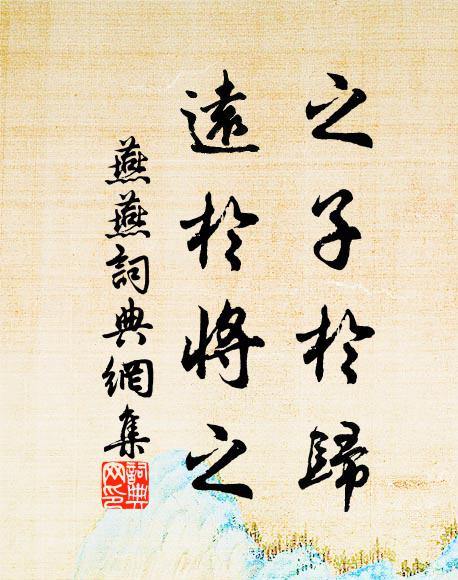 之子於歸
遠於將之
燕燕詞典網集
詞典网印